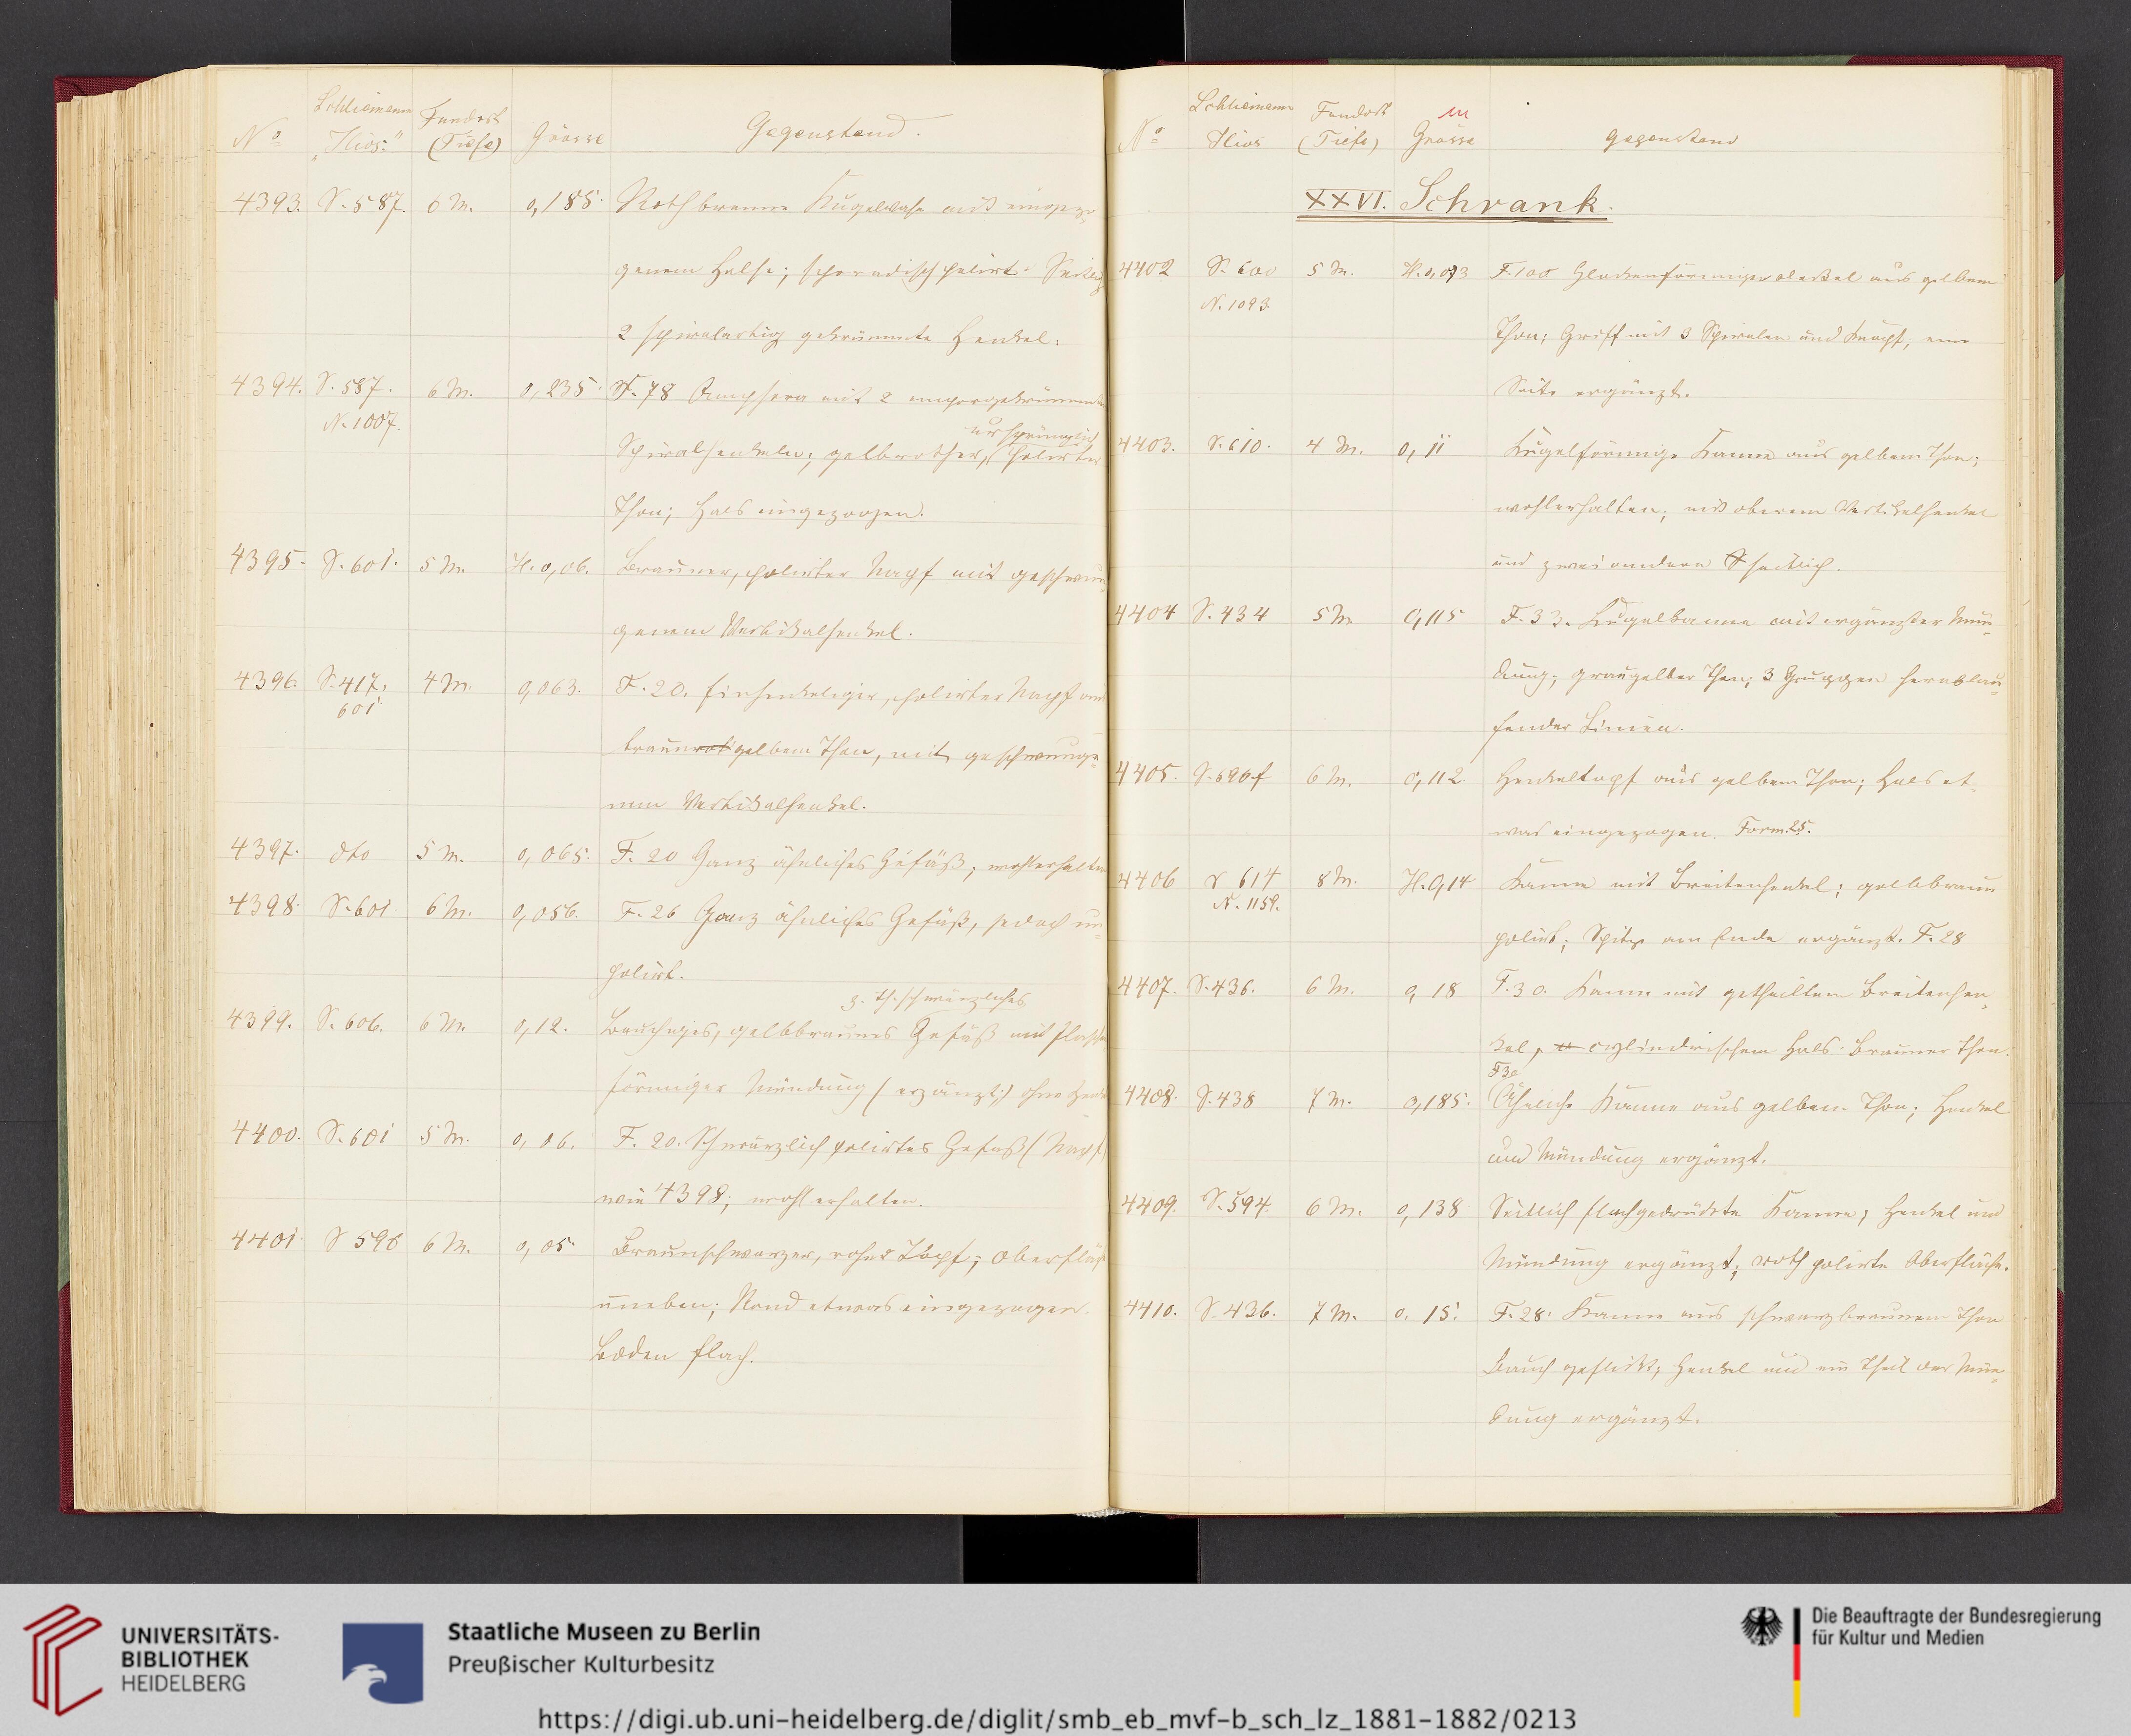 Schliemann Fundort
No "Ilios." (Tiefe) Grösse Gegenstand.
4393. S. 587. 6 M. 0,185. Rothbraune Kugelvase mit eingezo-
genem Halse; sporadisch polirt. Seitlich
2 spiralartig gekrümmte Henkel.
4394. S. 587. 6 M. 0,235. F. 78 Amphora mit 2 emporgekrümmten
N. 1007.
ursprünglich
Spiralhenkeln; gelbrother, polirter
Thon; Hals eingezogen.
4395. S. 601. 5 M. H. 0,06. Brauner, polirter Napf mit geschwun-
genem Vertikalhenkel.
4396. S. 417. 4 M. 0,063. F. 20. Einhenkeliger, polirter Napf aus
601
braunroth gelbem Thon, mit geschwunge-
nem Vertikalhenkel.
4397. dto 5 M. 0,065. F. 20 Ganz ähnliches Gefäß; wohlerhalten
4398. S. 601. 6 M. 0,056. F. 26 Ganz ähnliches Gefäß, jedoch un-
polirt.
z. Th. schwärzliches
4399. S. 606. 6 M. 0,12. Bauchiges, gelbbraunes Gefäß mit flaschen
förmiger Mündung (ergänzt;) ohne Henkel
4400. S. 601 5 M. 0,06. F. 20. Schwärzlich polirtes Gefäß (Napf)
wie 4398; wohl erhalten.
4401. S 596 6 M. 0,05 Braunschwarzer, roher Topf; Oberfläche
uneben; Rand etwas eingezogen.
Boden flach.
Schliemann Fundort m
No Ilios (Tiefe) Grösse Gegenstand
XXVI. Schrank.
4402 S. 600 5 M. H. 0,073 F. 100 Glockenförmiger Deckel aus gelbem
N. 1093.
Thon; Griff mit 3 Spiralen und Knopf; eine
Seite ergänzt.
4403. S. 610. 4 M. 0,11 Kugelförmige Kanne aus gelbem Thon;
wohlerhalten; mit oberem Vertikalhenkel
und zwei andern seitlich.
4404 S. 434 5 M 0,115 F. 33. Kugelkanne mit ergänzter Mün-
dung; graugelber Thon; 3 Gruppen herablau-
fender Linien.
4405. S. 696f 6 M. 0,112 Henkeltopf aus gelbem Thon; Hals et-
was eingezogen. Form. 25.
4406 S 614 8 M. H. 0,14 Kanne mit Breitenhenkel; gelbbraun
N. 1159.
polirt; Spitze am Ende ergänzt. F. 28
4407. S. 436. 6 M. 0,18 F. 30. Kanne mit getheiltem Breitenhen-
kel, cylindrischem Hals. Brauner Thon.
F30
4408. S. 438 7 M. 0,185. Ähnliche Kanne aus gelbem Thon; Henkel
und Mündung ergänzt.
4409. S. 594. 6 M. 0,138 Seitlich flachgedrückte Kanne; Henkel und
Mündung ergänzt; roth polirte Oberfläche.
4410. S. 436. 7 M. 0,15. F. 28. Kanne aus schwarzbraunem Thon
Bauch geflickt; Henkel und ein Theil der Mün-
dung ergänzt.
UNIVERSITÄTS-
BIBLIOTHEK
HEIDELBERG
Staatliche Museen zu Berlin
Preußischer Kulturbesitz
Die Beauftragte der Bundesregierung
für Kultur und Medien
https://digi.ub.uni-heidelberg.de/diglit/smb_eb_mvf-b_sch_lz_1881-1882/0213